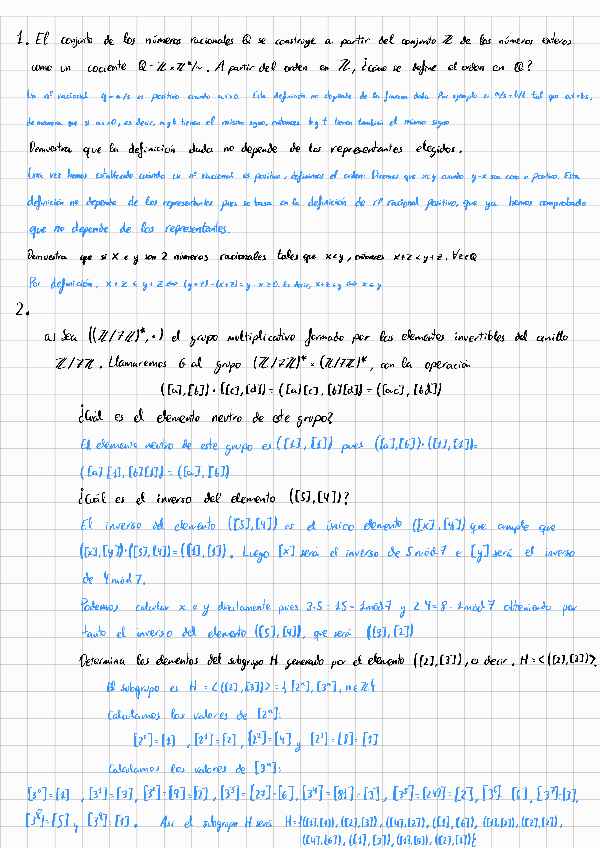 1. El conjunto de los números racionales Q se construye a partir del conjunto Z de los números enteros
como un cociente Q = Z × Z*/~. A partir del orden en Z, ¿cómo se define el orden en Q?
Un nº racional q = a/s es positivo cuando a·s>0. Esta definición no depende de la forma dada. Por ejemplo si a/s = b/t tal que at = bs,
de manera que si as>0, es decir, a y s tienen el mismo signo, entonces b y t tienen también el mismo signo
Demuestra que la definición dada no depende de los representantes elegidos.
Una vez hemos establecido cuándo un nº racional es positivo, definimos el orden. Diremos que x≤y cuando y-x sea cero o positivo. Esta
definición no depende de los representantes pues se basa en la definición de nº racional positivo, que ya hemos comprobado
que no depende de los representantes.
Demuestra que si x e y son 2 números racionales tales que x<y, entonces x+z<y+z. ∀z∈Q
Por definición, x+z < y+z ⇔ (y+z)-(x+z) = y-x ≥0. Es decir, x+z<y ⇔ x<y
2.
a) Sea ((Z/7Z)*, ·) el grupo multiplicativo formado por los elementos invertibles del anillo
Z/7Z. Llamaremos G al grupo (Z/7Z)* × (Z/7Z)*, con la operación
([a],[b]) · ([c],[d]) = ([a][c],[b][d]) = ([ac],[bd])
¿Cuál es el elemento neutro de este grupo?
El elemento neutro de este grupo es ([1],[1]) pues ([a],[b])·([1],[1])=
([a][1],[b][1]) = ([a],[b])
¿Cuál es el inverso del elemento ([5],[4])?
El inverso del elemento ([5],[4]) es el único elemento ([x],[y]) que cumple que
([x],[y])·([5],[4]) = ([1],[1]). Luego [x] será el inverso de 5 mód 7 e [y] será el inverso
de 4 mód 7.
Podemos calcular x e y directamente pues 3·5 = 15 = 1 mód 7 y 2·4 = 8 = 1 mód 7 obteniendo por
tanto el inverso del elemento ([5],[4]), que será ([3],[2])
Determina los elementos del subgrupo H generado por el elemento ([2],[3]), es decir, H=<([2],[3])>.
El subgrupo es H = <([2],[3])> = {[2ⁿ],[3ⁿ], n∈Z}
Calculamos los valores de [2ⁿ]:
[2⁰]=[1] , [2¹]=[2] , [2²]=[4] y [2³]=[8]=[1]
Calculamos los valores de [3ⁿ]:
[3⁰]=[1] , [3¹]=[3], [3²]=[9]=[2], [3³]=[27]=[6], [3⁴]=[81]=[3], [3⁵]=[243]=[2], [3⁶] [6], [3⁷]=[3],
[3⁸]=[5] y [3⁹]=[1]. Así el subgrupo H será H={([1],[1]), ([2],[3]), ([4],[2]), ([1],[6]), ([1],[3]), ([2],[2]),
([4],[6]), ([1],[3]), ([1],[6]), ([2],[1])}